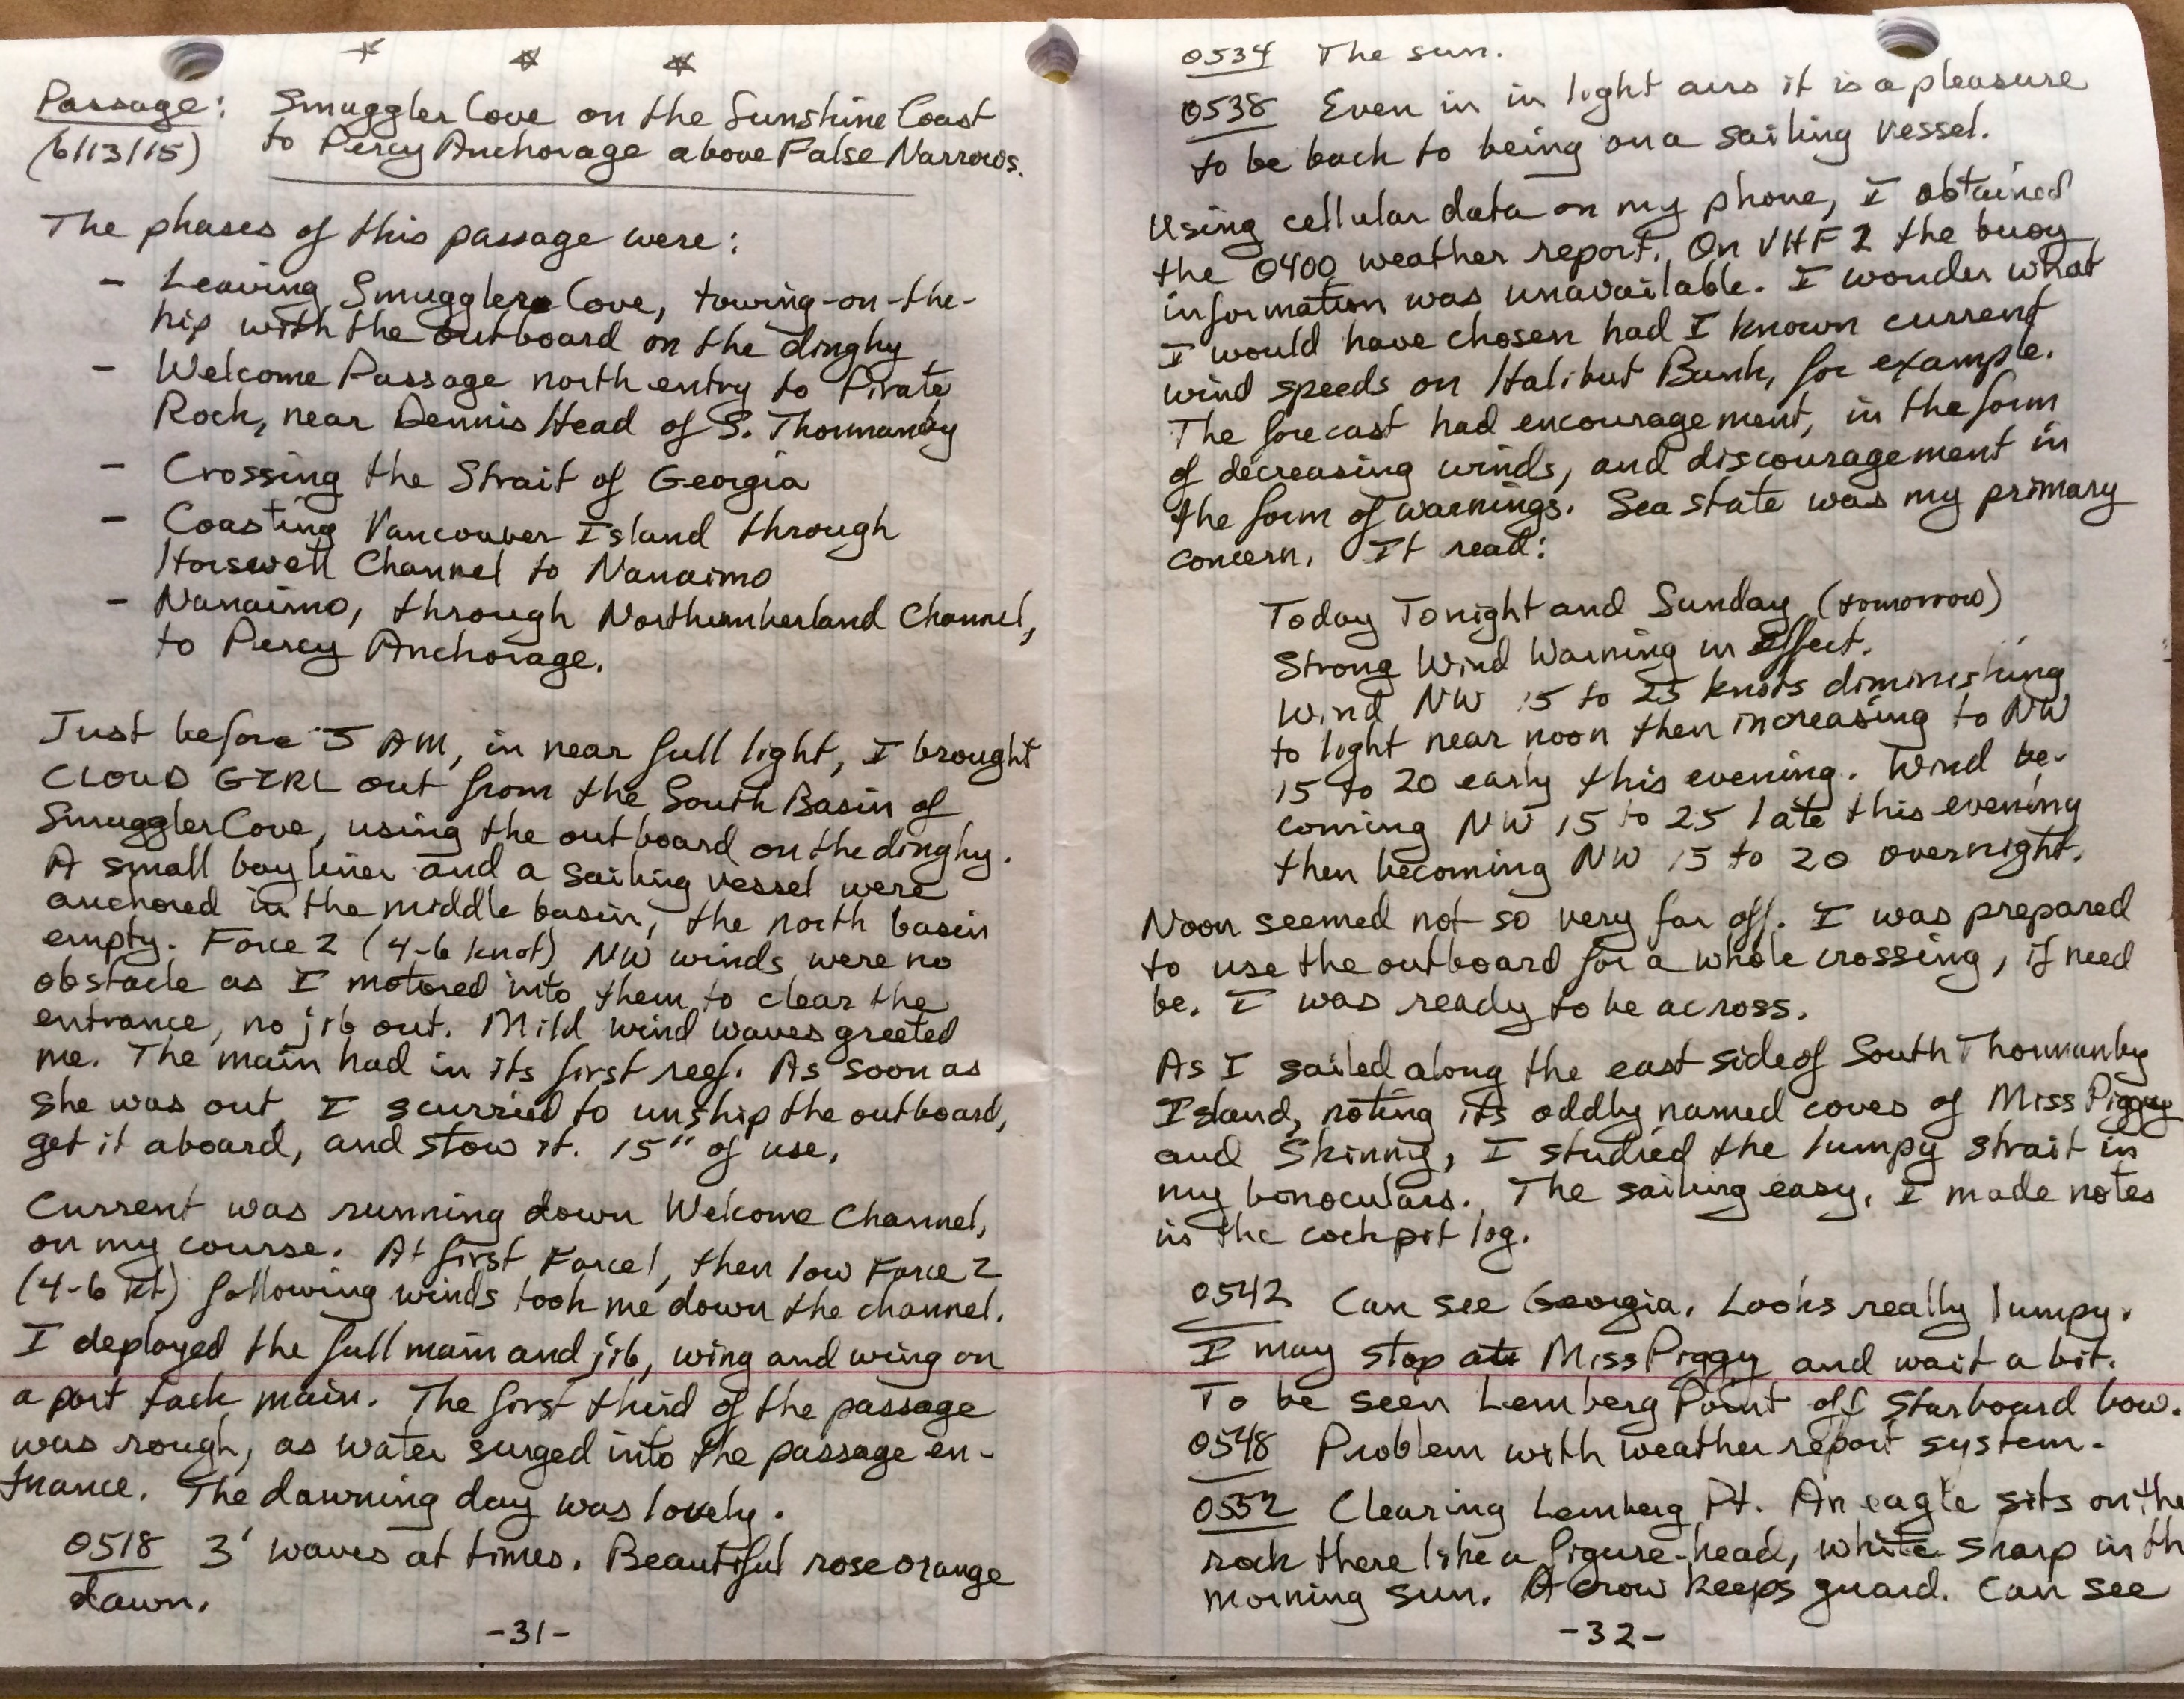 Passage: Smuggler Cove on the Sunshine Coast
(6/13/15) to Percy Anchorage above False Narrows.
The phases of this passage were:
- Leaving Smuggler Cove, towing-on-the-
hip with the outboard on the dinghy
- Welcome Passage north entry to Pirate
Rock, near Dennis Head of S. Thormanby
- Crossing the Strait of Georgia
- Coasting Vancouver Island through
Horswell Channel to Nanaimo
- Nanaimo, through Northumberland Channel,
to Percy Anchorage.
Just before 5 AM, in near full light, I brought
CLOUD GIRL out from the South Basin of
Smuggler Cove, using the outboard on the dinghy.
A small bayliner and a sailing vessel were
anchored in the middle basin, the north basin
empty. Force 2 (4-6 knot) NW winds were no
obstacle as I motored into them to clear the
entrance, no jib out. Mild wind waves greeted
me. The main had in its first reef. As soon as
she was out, I scurried to unship the outboard,
get it aboard, and stow it. 15" of use.
Current was running down Welcome Channel,
on my course. At first Force 1, then low Force 2
(4-6 kt) following winds took me down the channel.
I deployed the full main and jib, wing and wing on
a port tack main. The first third of the passage
was rough, as water surged into the passage en-
trance. The dawning day was lovely.
0518 3' waves at times. Beautiful rose orange
dawn.
-31-
0534 The sun.
0538 Even in in light airs it is a pleasure
to be back to being on a sailing vessel.
Using cellular data on my phone, I obtained
the 0400 weather report. On VHF 2 the buoy
information was unavailable. I wonder what
I would have chosen had I known current
wind speeds on Halibut Bank, for example.
The forecast had encouragement, in the form
of decreasing winds, and discouragement in
the form of warnings. Sea state was my primary
concern. It read:
Today Tonight and Sunday (tomorrow)
Strong Wind Warning in effect.
Wind NW 15 to 25 knots diminishing
to light near noon then increasing to NW
15 to 20 early this evening. Wind be-
coming NW 15 to 25 late this evening
then becoming NW 15 to 20 overnight.
Noon seemed not so very far off. I was prepared
to use the outboard for a whole crossing, if need
be. I was ready to be across.
As I sailed along the east side of South Thormanby
Island, noting its oddly named coves of Miss Piggy
and Skinny, I studied the lumpy strait in
my binoculars. The sailing easy, I made notes
in the cockpit log.
0542 Can see Georgia. Looks really lumpy.
I may stop at Miss Piggy and wait a bit.
To be seen Lemberg Point off starboard bow.
0548 Problem with weather report system.
0552 Clearing Lemberg Pt. An eagle sits on the
rock there like a figure-head, white sharp in th
morning sun. A crow keeps guard. Can see
-32-